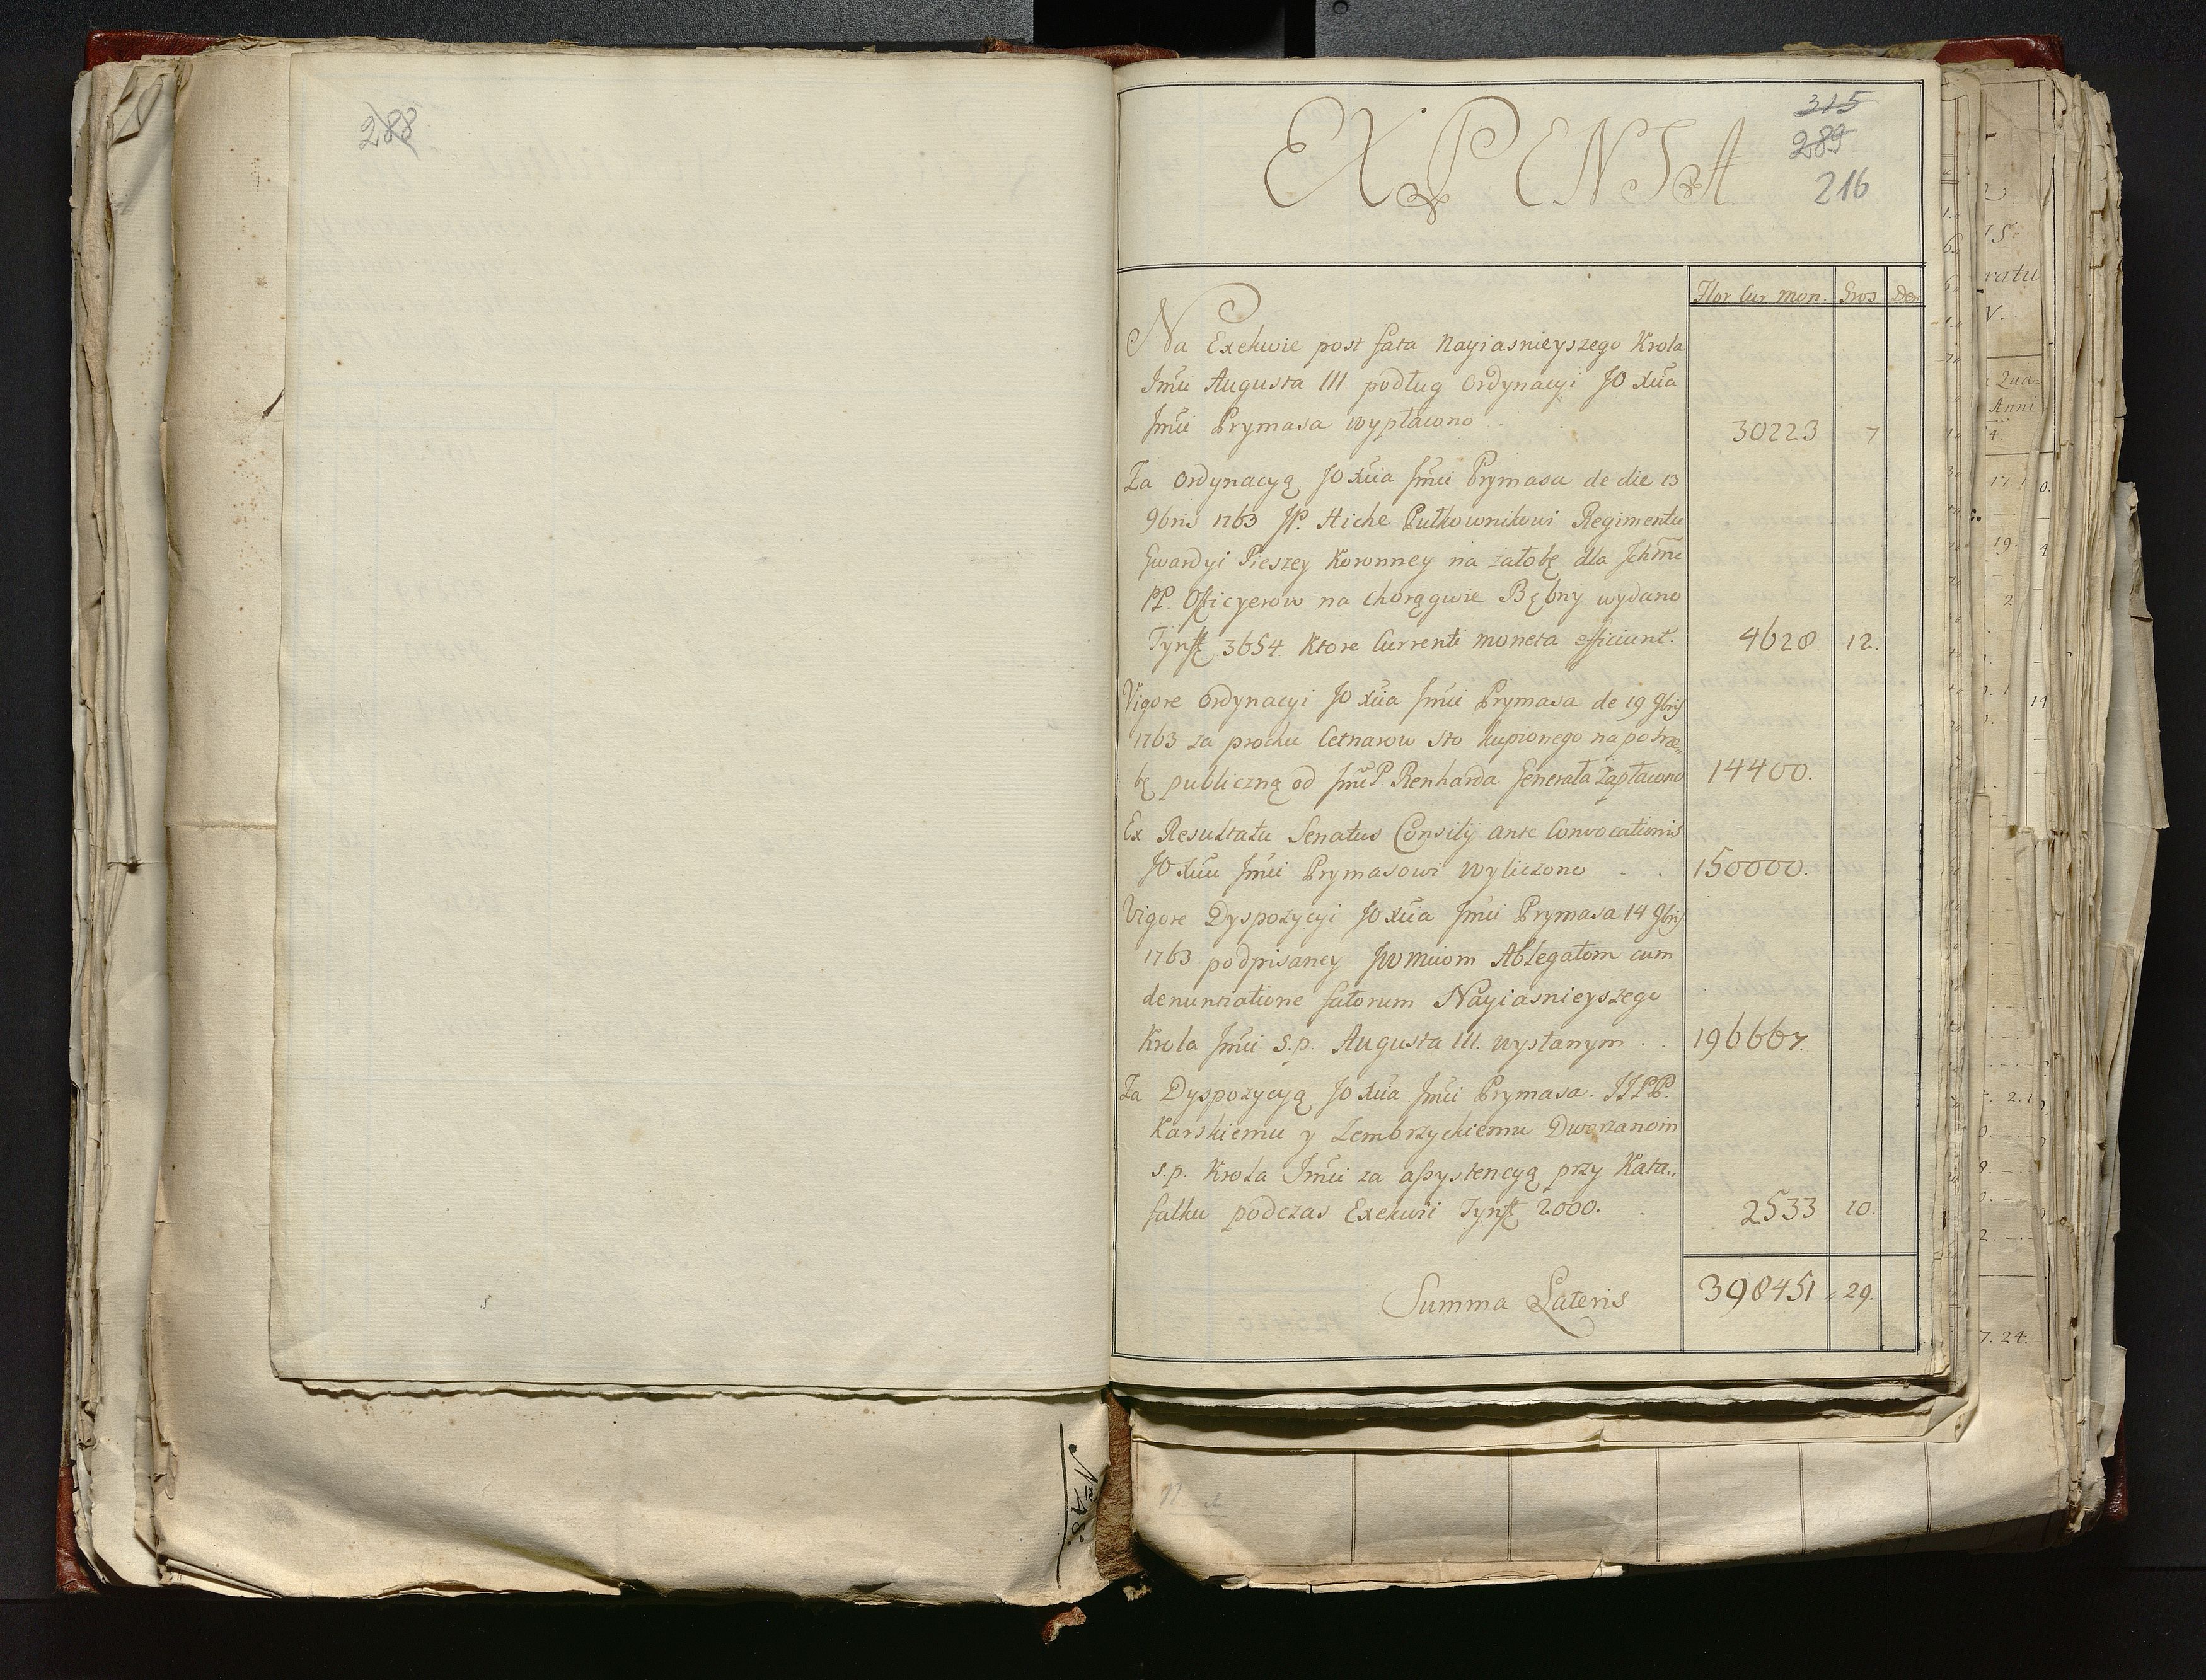 288
315
289
216
EXPENSA
Flor Cur Mon. Gros Den
Na Exekwie post fata Nayiasnieyszego Krola
Jmći Augusta III. podług Ordynacyi JO Xcia
Jmći Prymasa wypłacono 30223 7
Za Ordynacyą JO Xcia Jmći Prymasa de die 13
9bris 1763 JP. Hiche Pułkownikowi Regimentu
Gwardyi Pieszey Koronney na załobę dla Jchmć
PP. Officyerow na chorągwie Bębny wydano
Tynff 3654. Ktore Currenti moneta efficiunt. 4628. 12.
Vigore Ordynacyi JO Xcia Jmći Prymasa de 19 9bris
1763 za prochu Cetnarow sto kupionego na potrze„
bę publiczną od JmćP. Renharda Generała zapłacono 14400.
Ex Resultatu Senatus Consilij ante Convocationis
JO Xciu Jmći Prymasowi wyliczono . . 150000.
Vigore Dyspozycyi JO Xcia Jmći Prymasa 14 9bris
1763 podpisaney JWMciom Ablegatom cum
denuntiatione fatorum Nayiasnieyszego
Krola Jmći S.p. Augusta III. wysłanym . . 196667.
Za Dyspozycyą JO Xcia Jmći Prymasa. JJPP.
Karskiemu y Zembrzyckiemu Dworzanom
s.p. Krola Jmći za assystencyą przy Kata„
falku podczas Exekwii Tynff 2000. 2533 10.
Summa Lateris 398451 29.